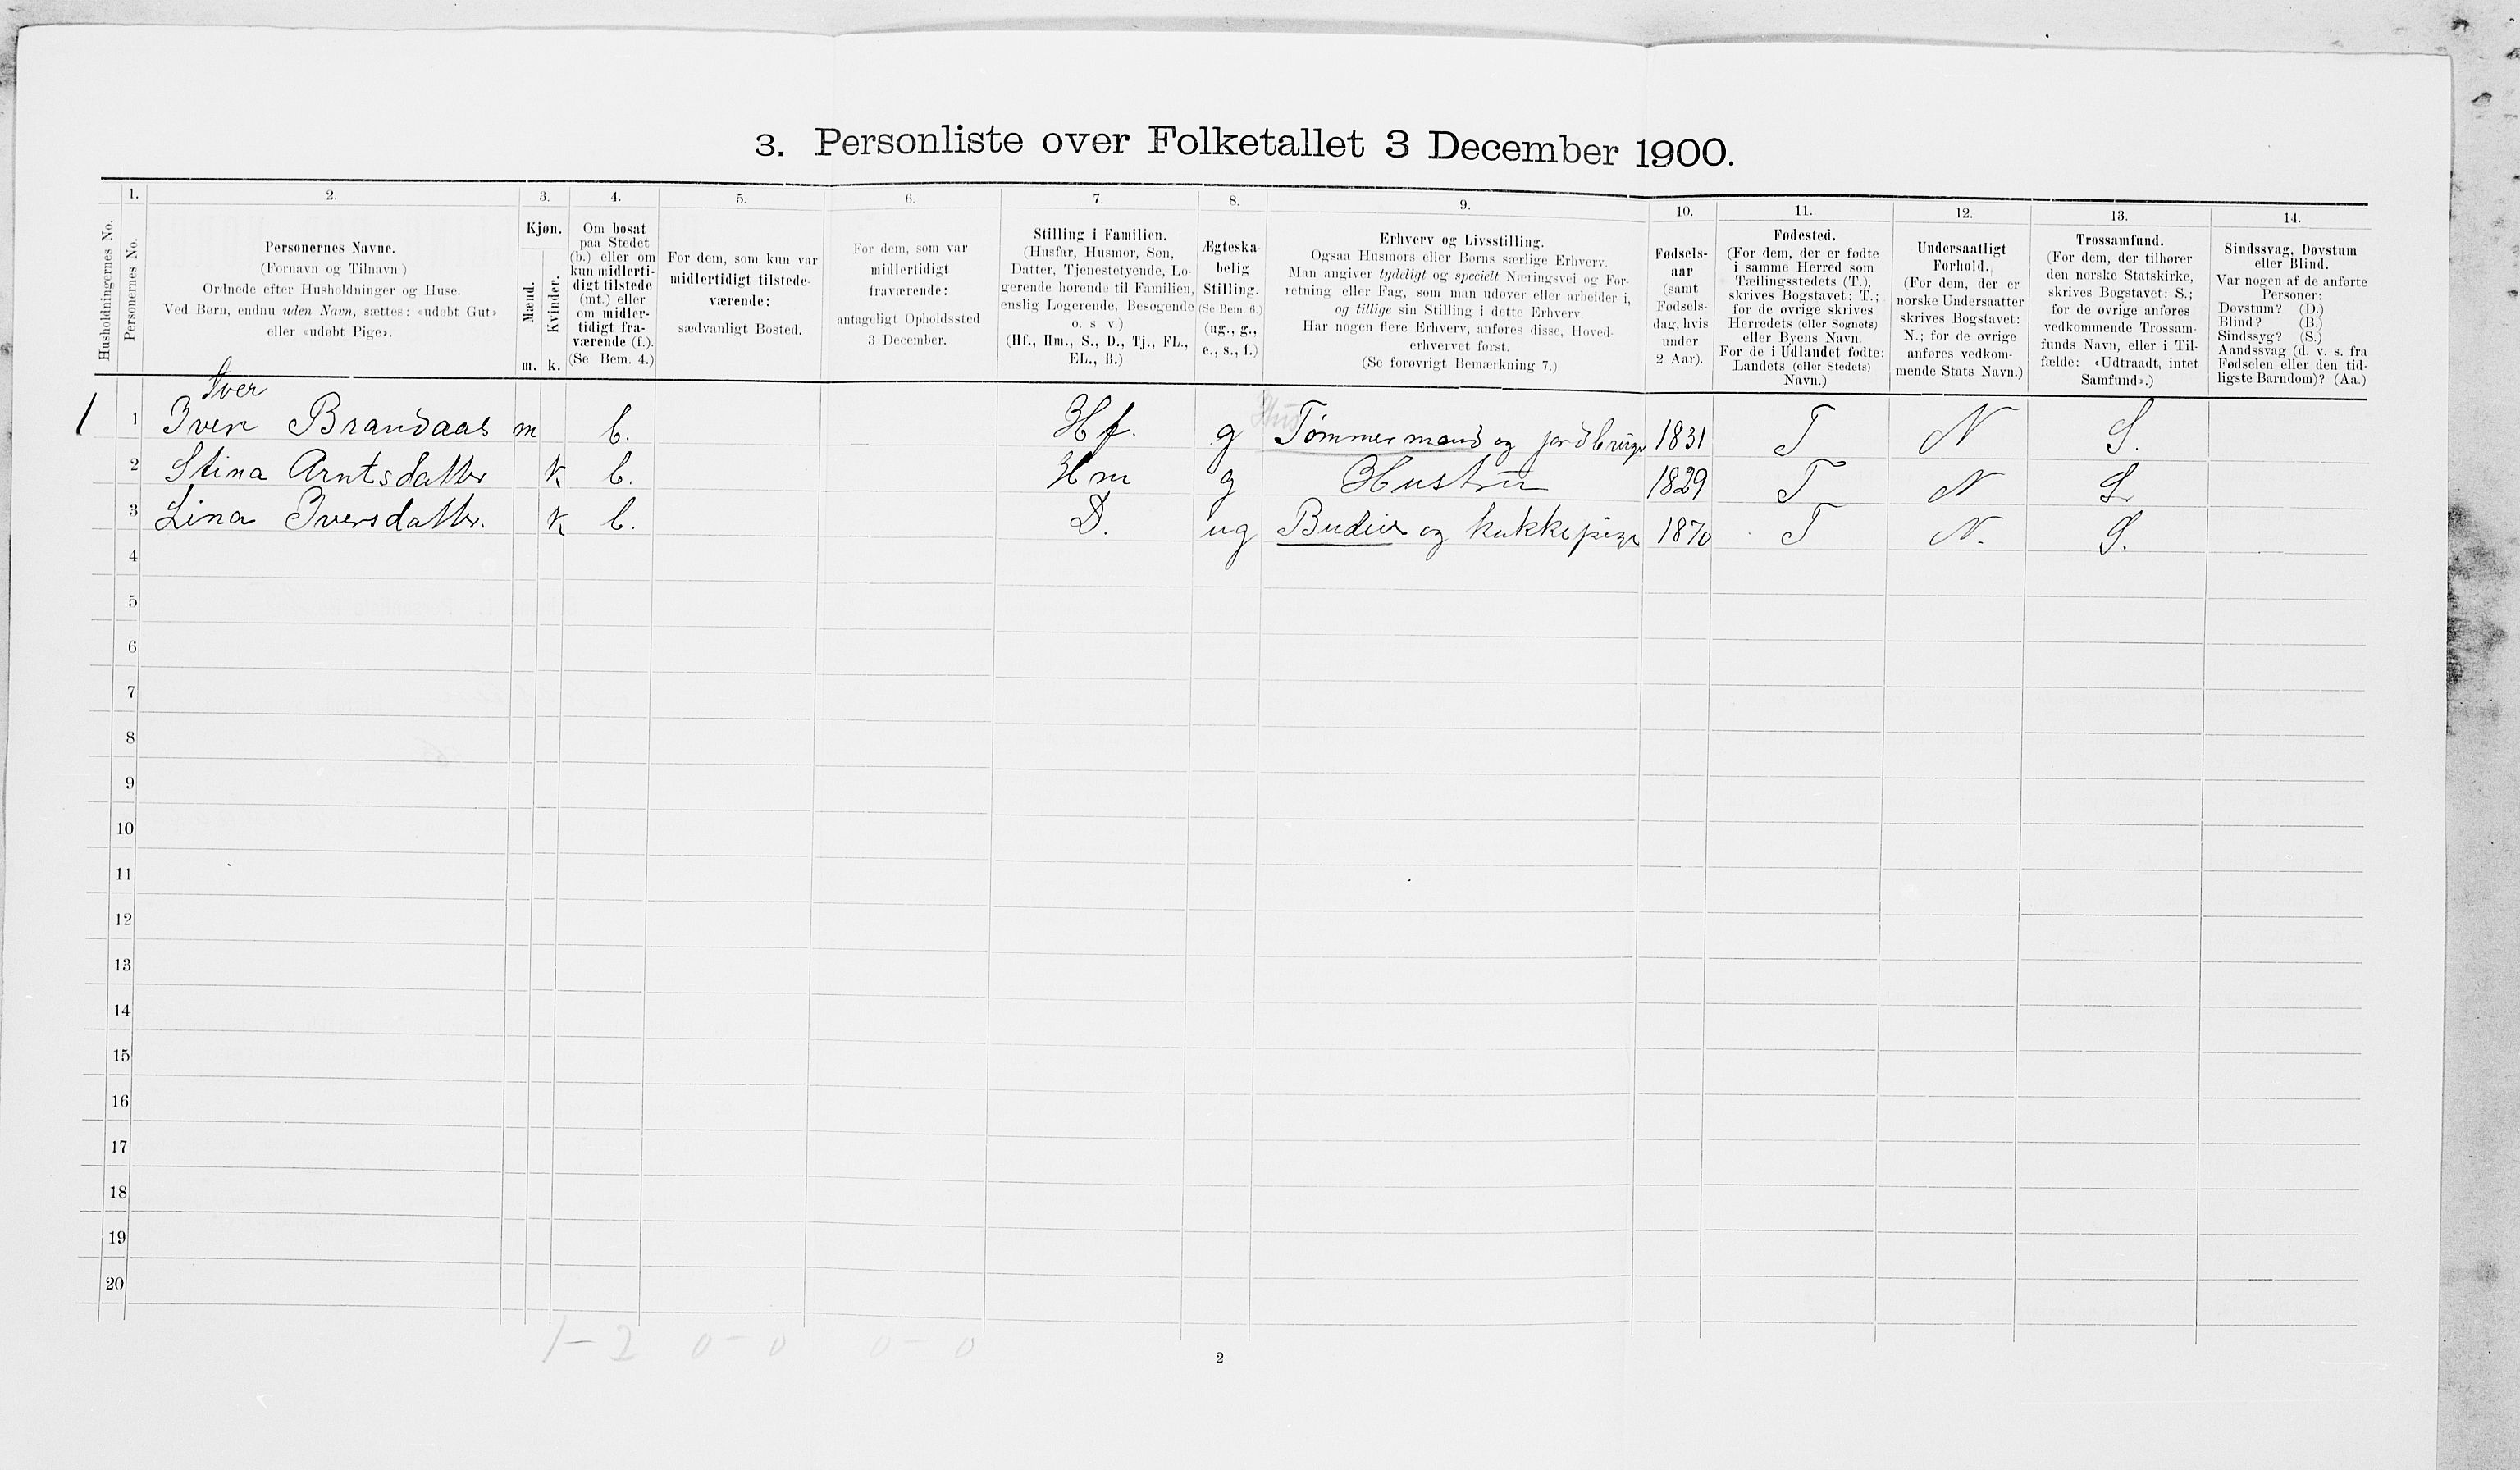 3. Personliste over Folketallet 3 December 1900.
1. 2. 3. 4. 5. 6. 7. 8. 9. 10. 11. 12. 13. 14.
Husholdningernes No.
Personernes No.
Personernes Navne.
(Fornavn og Tilnavn)
Ordnede efter Husholdninger og Huse.
Ved Børn, endnu uden Navn, sættes: «udøbt Gut»
eller «udøbt Pige».
Kjøn.
Mænd.
Kvinder.
m. k.
Om bosat
paa Stedet
(b.) eller om
kun midlerti-
digt tilstede
(mt.) eller
om midler-
tidigt fra-
værende (f.).
(Se Bem. 4.)
For dem, som kun var
midlertidigt tilstede-
værende:
sædvanligt Bosted.
For dem, som var
midlertidigt
fraværende:
antageligt Opholdssted
3 December.
Stilling i Familien.
(Husfar, Husmor, Søn,
Datter, Tjenestetyende, Lo-
gerende hørende til Familien,
enslig Logerende, Besøgende
o. s v.)
(Hf., Hm., S., D., Tj., FL.,
EL., B.)
Ægteska-
belig
Stilling.
(Se Bem. 6.)
(ug., g.,
e., s., f.)
Erhverv og Livsstilling.
Ogsaa Husmors eller Børns særlige Erhverv.
Man angiver tydeligt og specielt Næringsvei og For-
retning eller Fag, som man udøver eller arbeider i,
og tillige sin Stilling i dette Erhverv.
Har nogen flere Erhverv, anføres disse, Hoved-
erhvervet først.
(Se forøvrigt Bemærkning 7.)
Fødsels-
aar
(samt
Fødsels-
dag, hvis
under
2 Aar).
Fødested.
(For dem, der er fødte
i samme Herred som
Tællingsstedets (T.),
skrives Bogstavet: T.;
for de øvrige skrives
Herredets (eller Sognets)
eller Byens Navn.
For de i Udlandet fødte:
Landets (eller Stedets)
Navn.)
Undersaatligt
Forhold.
(For dem, der er
norske Undersaatter
skrives Bogstavet:
N.; for de øvrige
anføres vedkom-
mende Stats Navn.)
Trossamfund.
(For dem, der tilhører
den norske Statskirke,
skrives Bogstavet: S.;
for de øvrige anføres
vedkommende Trossam-
funds Navn, eller i Til-
fælde: «Udtraadt, intet
Samfund».)
Sindssvag, Døvstum
eller Blind.
Var nogen af de anførte
Personer:
Døvstum? (D.)
Blind? (B.)
Sindssyg? (S.)
Aandssvag (d. v. s. fra
Fødselen eller den tid-
ligste Barndom)? (Aa.)
Iver
1 1 Iver Brandaas m b. Hf. g Hus Tømmermand og jordbruger 1831 T N S.
2 Stina Arntsdatter k b. Hm g Hustru 1829 T N S.
3 Lina Iversdatter. k b. D. ug Budeie og kukkepige 1870 T N. S.
4
5
6
7
8
9
10
11
12
13
14
15
16
17
18
19
20
1 - 2 0 - 0 0 - 0
2